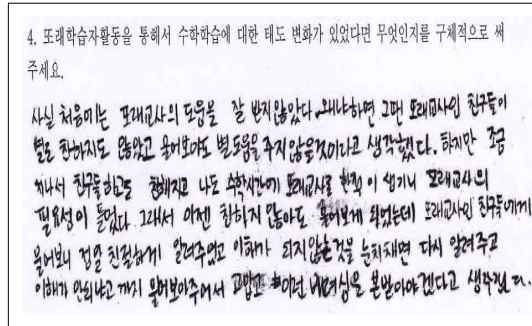 4. 또래학습자활동을 통해서 수학학습에 대한 태도 변화가 있었다면 무엇인지를 구체적으로 써
주세요.
사실 처음에는 또래교사의 도움을 잘 받지않았다. 왜냐하면 그땐 또래교사인 친구들이
별로 친하지도 않았고 물어보아도 별도움을 주지않을것이라고 생각했다. 하지만 조금
지나서 친구들하고도 친해지고 나도 수학시간에 또래교사로 이 생기니 또래교사의
필요성이 들었다. 그래서 이젠 친하지 않아도 물어보게 되었는데 또래교사인 친구들에게
물어보니 정말 친절하게 알려주었고 이해가 되지않는것을 눈치채면 다시 알려주고
이해가 안되냐고 까지 물어보아주어서 고맙고 이런 배려심을 본받아야겠다고 생각했다.